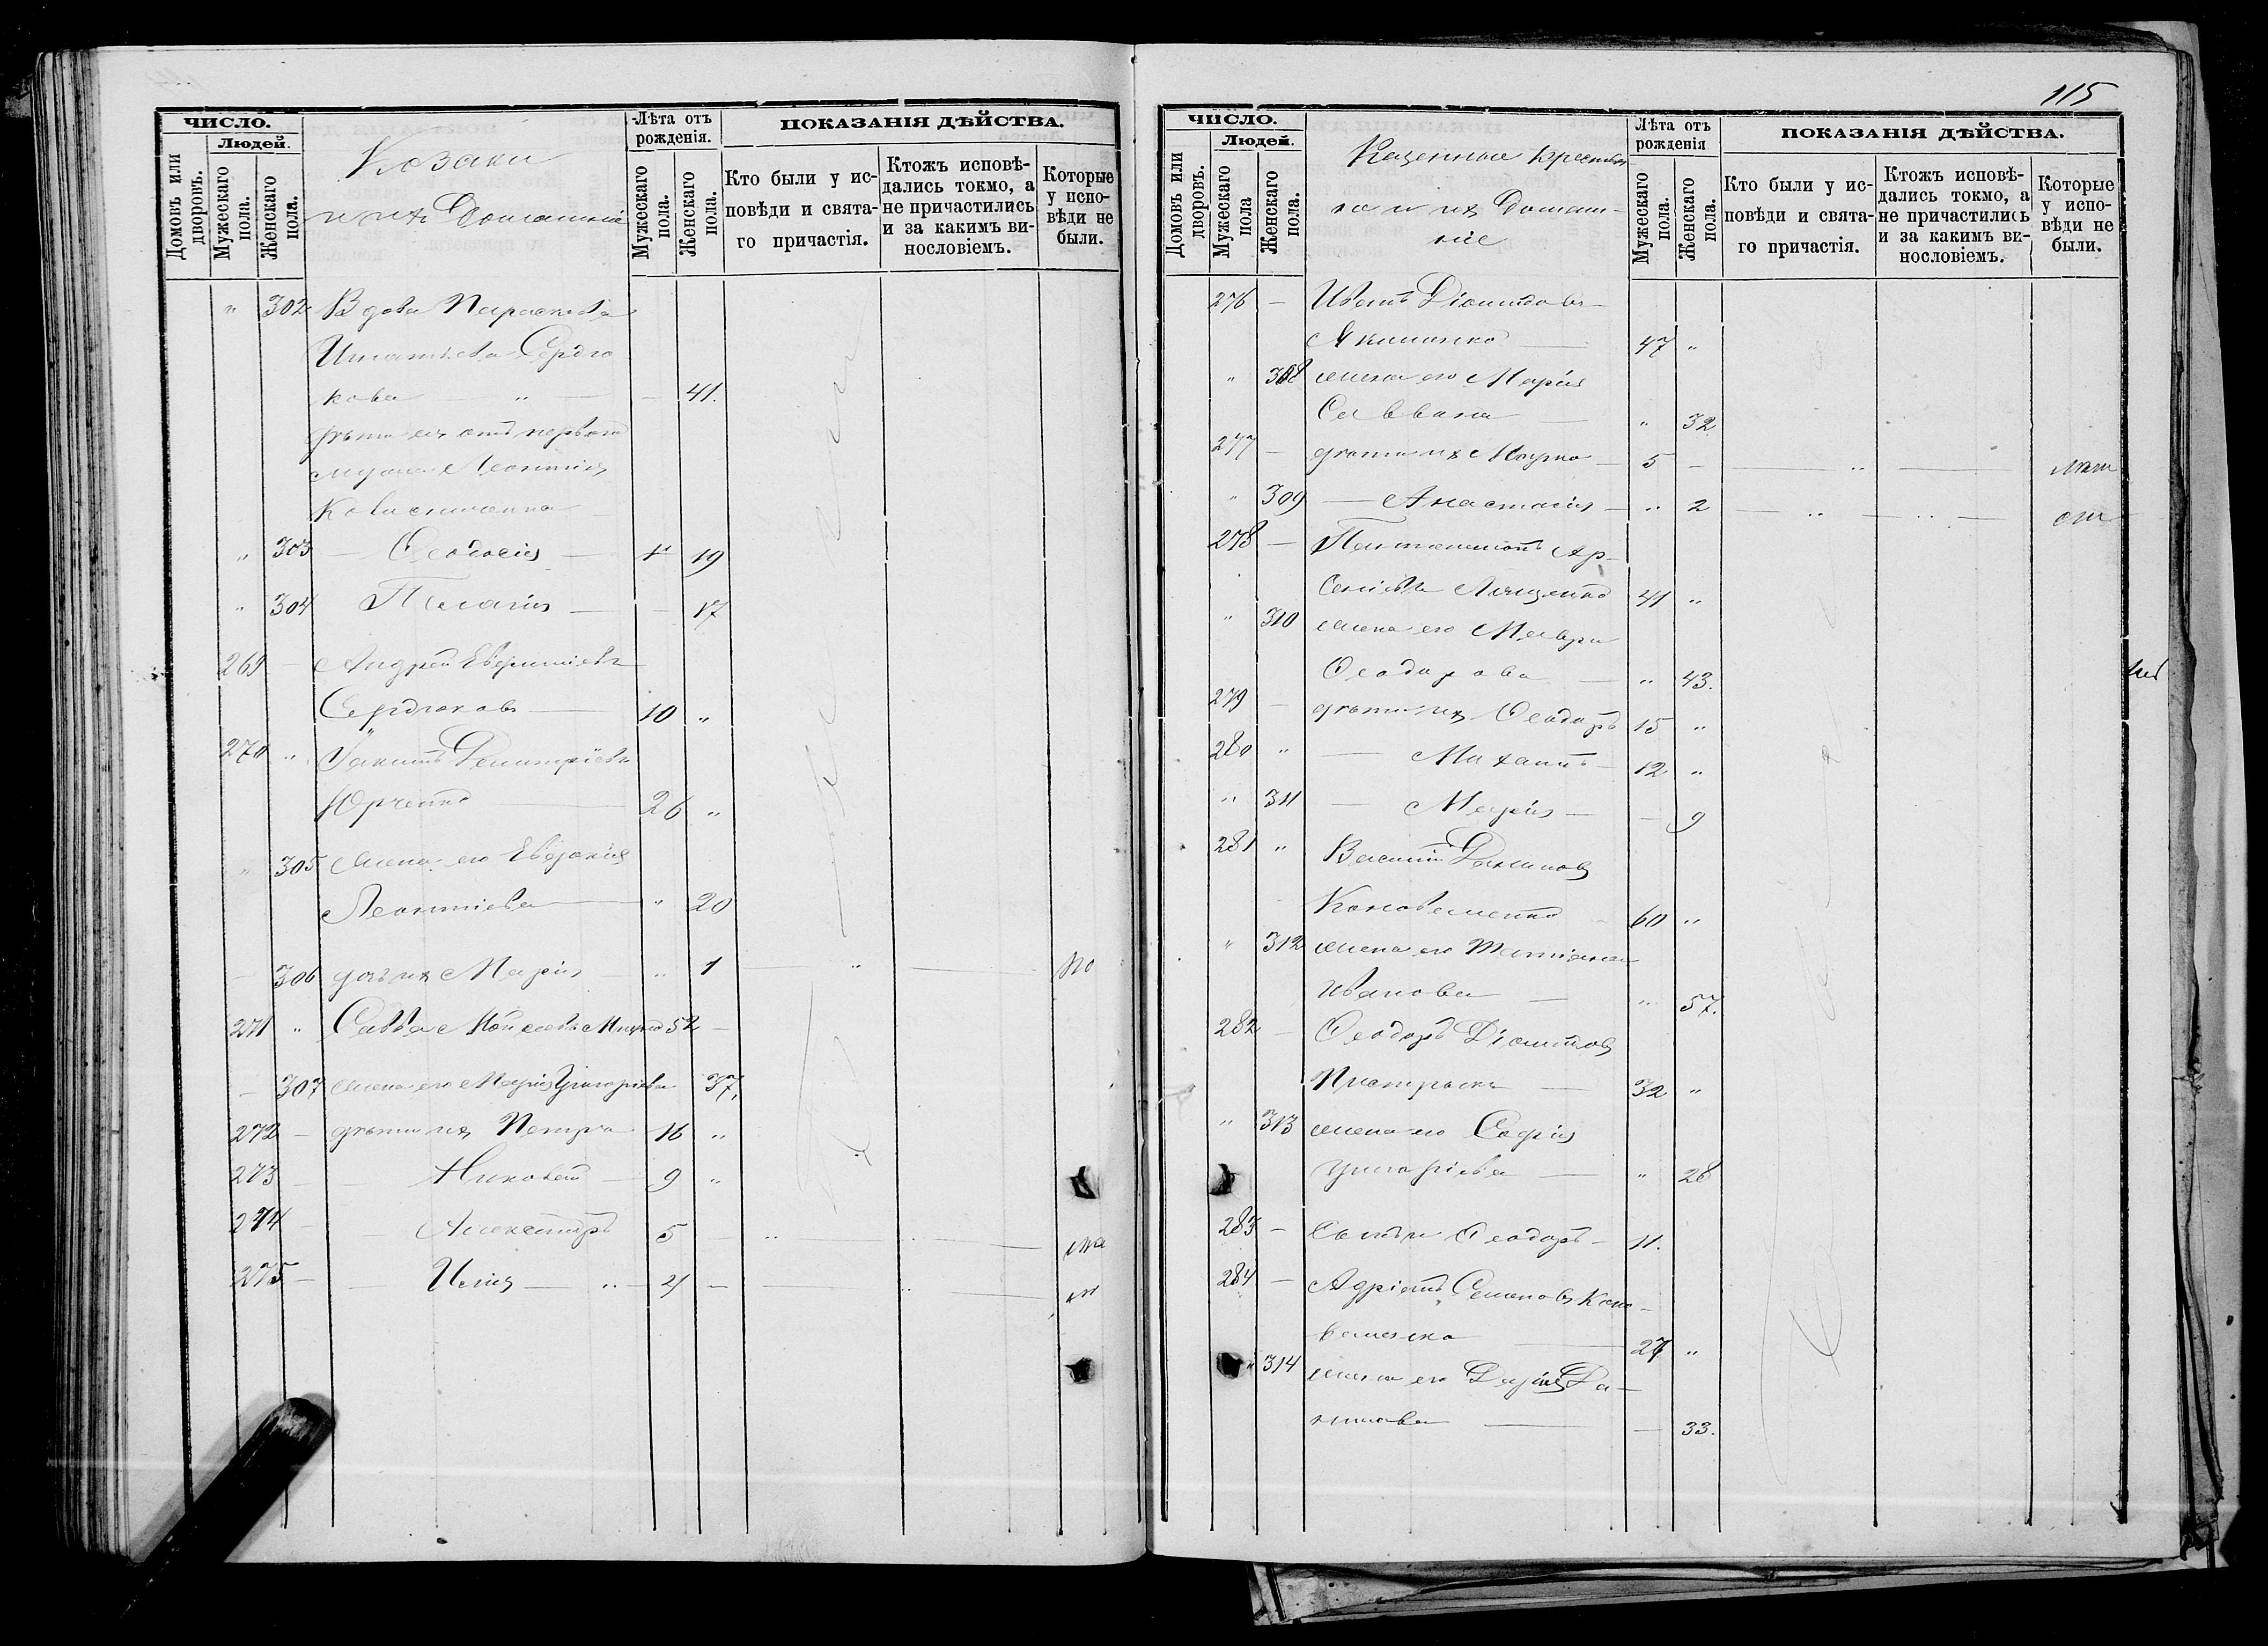 ЧИСЛО.
Людей.
Домовъ или дворовъ.
Мужескаго пола.
Женскаго пола.
Козаки
и ихъ Домашніе
Лѣта отъ рожденія.
Мужескаго пола.
Женскаго пола.
ПОКАЗАНІЯ ДѢЙСТВА.
Кто были у ис-
повѣди и свята-
го причастія.
Ктожъ исповѣ-
дались токмо, а
не причастились
и за какимъ ви-
нословіемъ.
Которые
у испо-
вѣди не
были.
" 302 Вдова Параскева
Игнатьева Сердю
кова " — 41.
дѣти ея отъ перваго
мужа Леонтія
" 303 — Ѳеодосія — 19
" 304 Пелагія — — 17
269 — Андрей Евфиміевъ
Сердюковъ — 10 "
270 " Іакимъ Димитріевъ
Юрченко — 26 "
" 305 жена его Евдокія
Леонтіева — " 20
— 306 дочь ихъ Марія — " 1 — "
271 " Савва Моисеевъ 52 —
— 307 жена его Марія Григоріева 37.
272 — дѣти ихъ Петръ 16 "
273 — — Николай — 9 "
274 — — Александръ 5 — "
275 — — Илія — " — —
115
ЧИСЛО.
Людей.
Домовъ или дворовъ.
Мужескаго пола
Женскаго пола.
Казенные крестья
не и ихъ Домаш-
ніе
Лѣта отъ рожденія
Мужескаго пола.
Женскаго пола.
ПОКАЗАНІЯ ДѢЙСТВА.
Кто были у ис-
повѣди и свята-
го причастія.
Ктожъ исповѣ-
дались токмо, а
не причастились
и за какимъ ви-
нословіемъ.
Которые
у испо-
вѣди не
были.
276 — Иванъ Діомидовъ
Якименко — 47 "
" 308 жена его Марія
Саввина — " 32
277 — дѣти ихъ Марко — 5 — "
" 309 — Анастасія — " 2 — "
278 — Пантелеимонъ Ар-
сеніевъ Лященко 41 "
" 310 жена его Мавра
Ѳеодорова — " 43.
279 — дѣти ихъ Ѳеодоръ 15 "
280 " — Михаилъ — 12 "
" 311 — Марія — — 9
281 " Василій Даниловъ
Коноваленко 60 "
" 312 жена его Татіана
Иванова — " 57.
282 — Ѳеодоръ Діомидовъ
32 "
" 313 жена его Софія
Григоріева — " 28
283 — Ѳеодоръ — 11.
284 — Адріанъ Семеновъ Коно-
валенко — 27 "
" 314 жена его Дарія Да-
нилова — — 33.